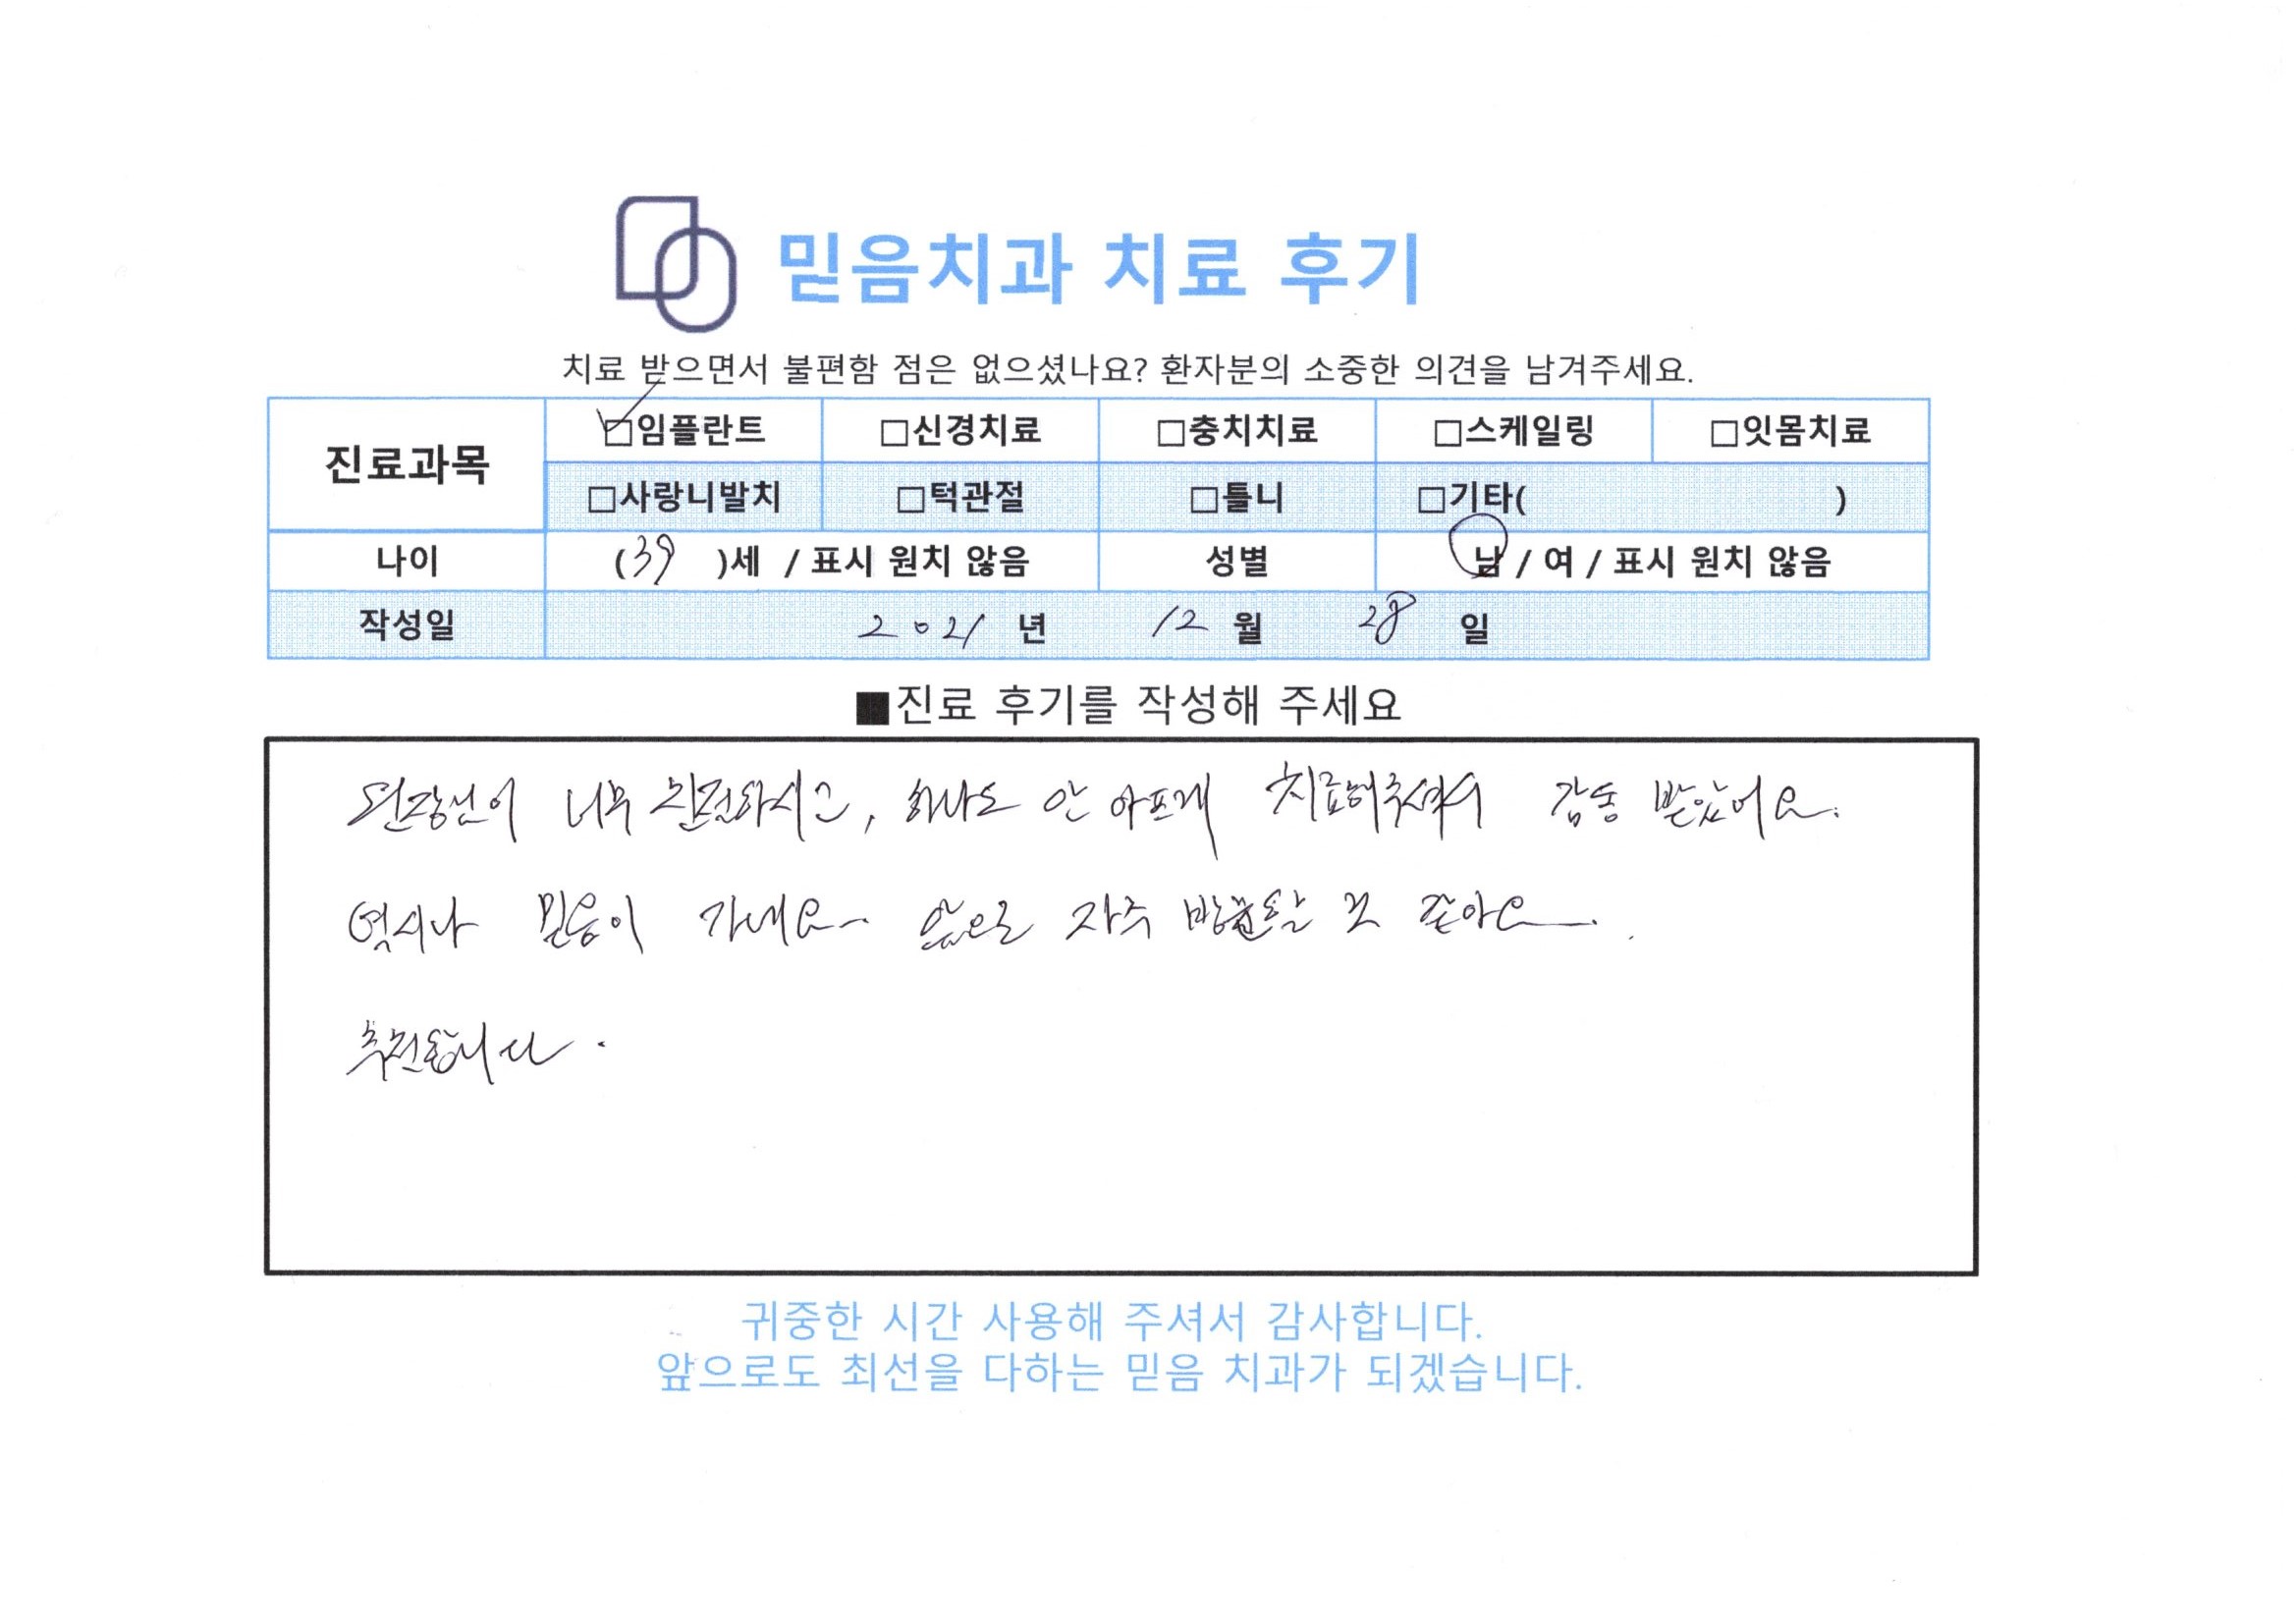 믿음치과 치료 후기
치료 받으면서 불편함 점은 없으셨나요? 환자분의 소중한 의견을 남겨주세요.
진료과목 ☑임플란트 □신경치료 □충치치료 □스케일링 □잇몸치료
□사랑니발치 □턱관절 □틀니 □기타( )
나이 (39 )세 / 표시 원치 않음 성별 남 / 여 / 표시 원치 않음
작성일 2021 년 12 월 28 일
■진료 후기를 작성해 주세요
원장님이 너무 친절하시고, 하나도 안 아프게 치료해주셔서 감동 받았어요.
역시나 믿음이 가네요~ 앞으로 자주 방문할 것 같아요.
추천합니다.
귀중한 시간 사용해 주셔서 감사합니다.
앞으로도 최선을 다하는 믿음 치과가 되겠습니다.